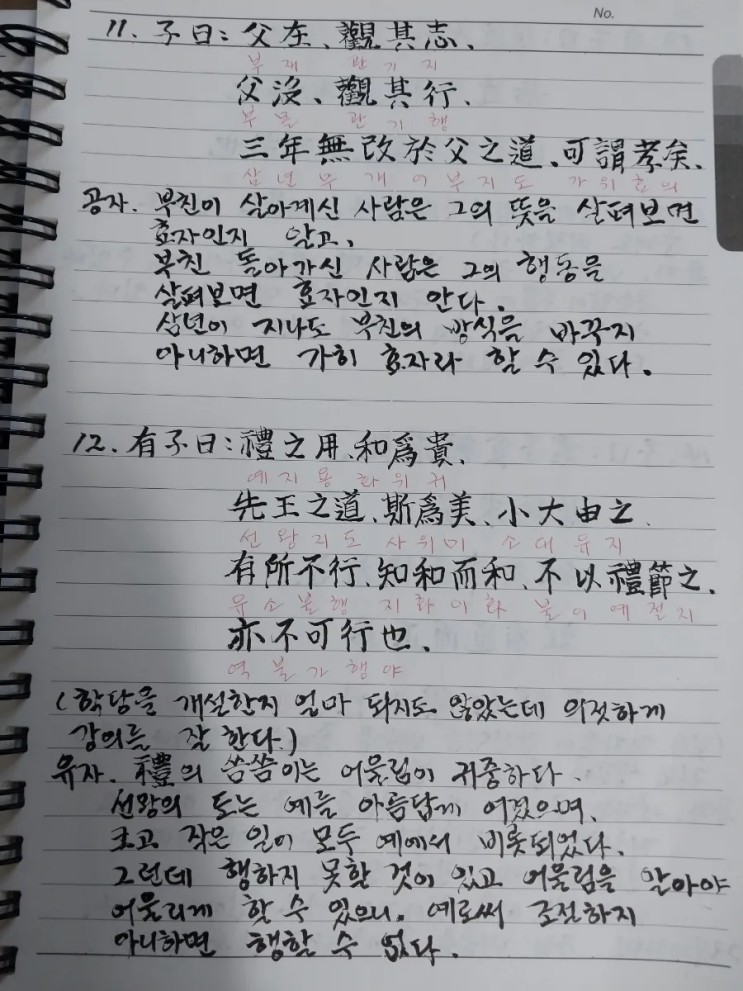 No.
11. 子曰: 父在、觀其志、
부재 반기지
父沒、觀其行、
부몰 관기행
三年無改於父之道、可謂孝矣、
삼년무개어부지도 가위효의
공자. 부친이 살아계신 사람은 그의 뜻을 살펴보면
효자인지 알고,
부친 돌아가신 사람은 그의 행동을
살펴보면 효자인지 안다.
삼년이 지나도 부친의 방식을 바꾸지
아니하면 가히 효자라 할 수 있다.
12. 有子曰: 禮之用、和爲貴、
예지용 화위귀
先王之道、斯爲美、小大由之、
선왕지도 사위미 소대유지
有所不行、知和而和、不以禮節之、
유소불행 지화이화 불이예절지
亦不可行也、
역불가행야
(학당을 개설한지 얼마 되지도 않았는데 의젓하게
강의를 잘 한다.)
유자. 禮의 씀씀이는 어울림이 귀중하다.
선왕의 도는 예를 아름답게 여겼으며,
크고 작은 일이 모두 예에서 비롯되었다.
그런데 행하지 못할 것이 있고 어울림을 알아야
어울리게 할 수 있으니. 예로써 조절하지
아니하면 행할 수 없다.